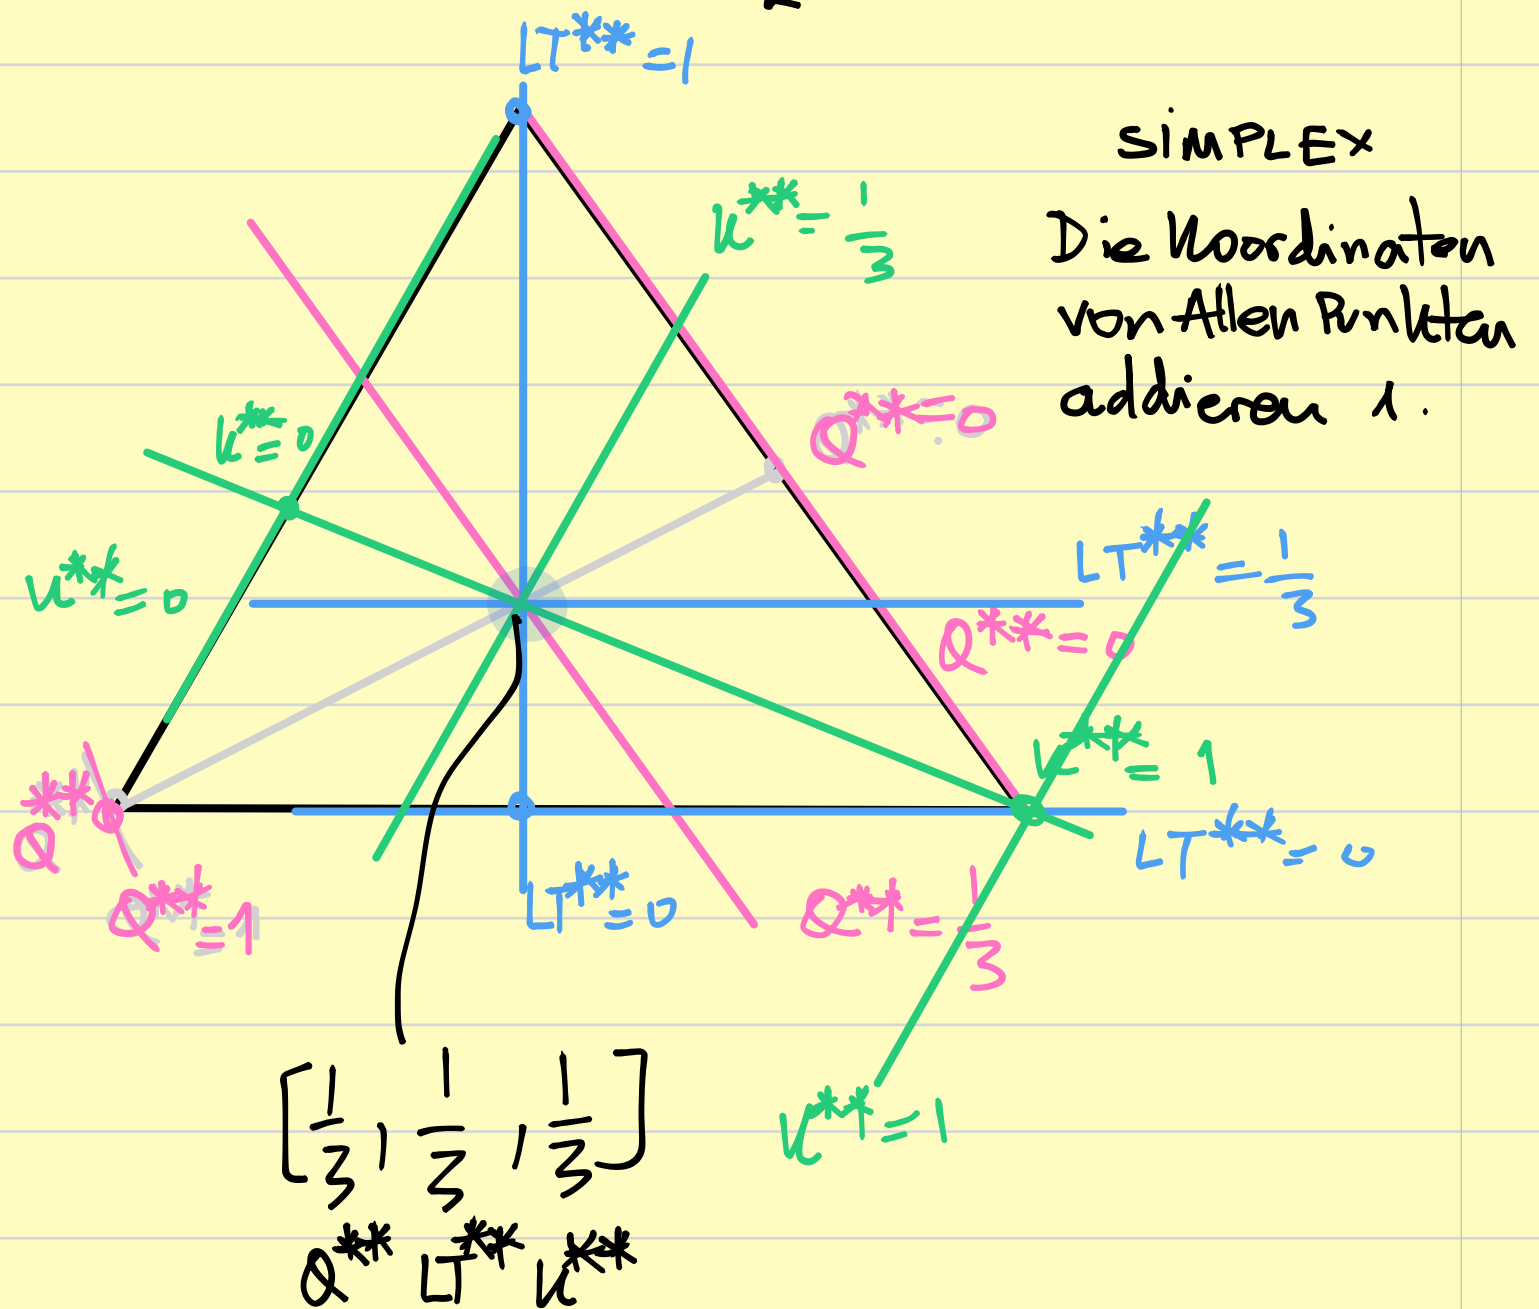 LT**=1
SIMPLEX
Die Koordinaten
von Allen Punkten
addieren 1.
K**=1/3
K**=0
Q**=0
K**=0
LT**=1/3
Q**=0
K**=1
Q**
LT**=0
Q**=1
LT**=0
Q**=1/3
K**=1
[1/3, 1/3, 1/3]
Q** LT** K**